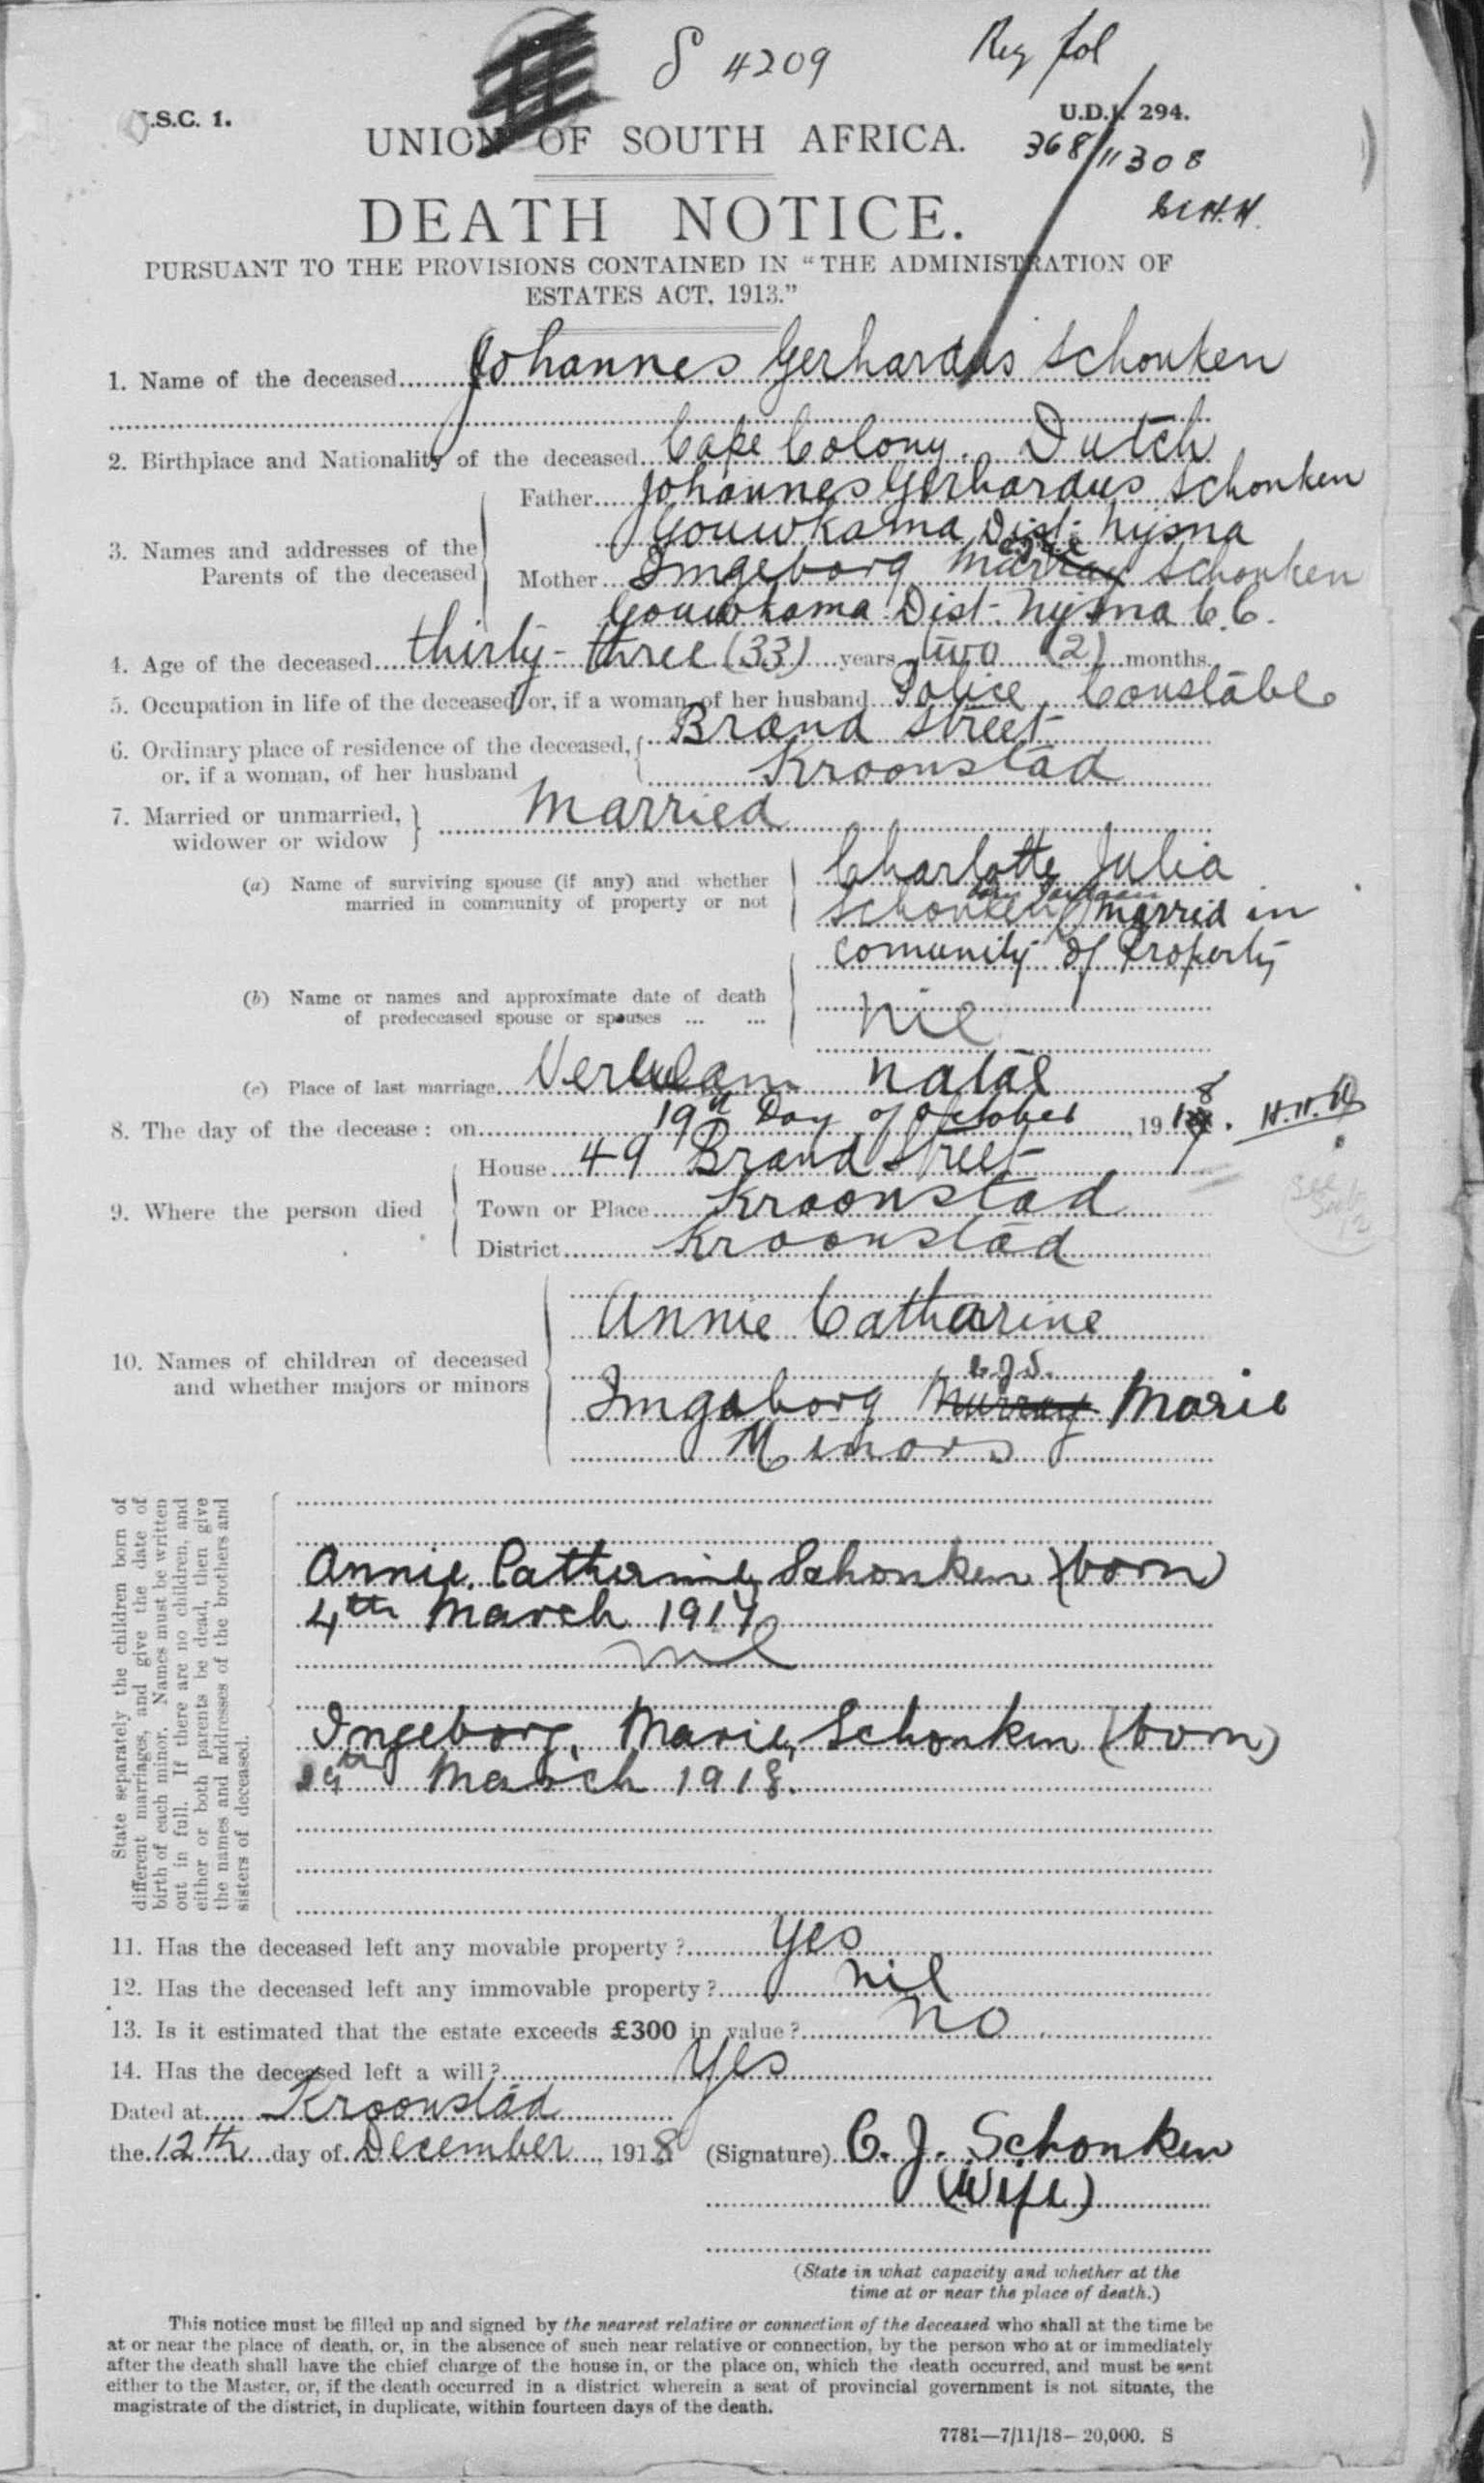 S 4209
Reg fol
.S.C. 1.
U.D.J. 294.
UNION OF SOUTH AFRICA.
368/11308
DEATH NOTICE.
PURSUANT TO THE PROVISIONS CONTAINED IN "THE ADMINISTRATION OF
ESTATES ACT, 1913."
1. Name of the deceased Johannes Gerhardus Schonken
2. Birthplace and Nationality of the deceased Cape Colony. Dutch
Father Johannes Gerhardus Schonken
Gouwkama Dist- Nijsna
3. Names and addresses of the
Parents of the deceased
Mother Imgeborg Murray Schonken
Gouwkama Dist- Nijsna C.C.
4. Age of the deceased thirty-three (33) years two (2) months
5. Occupation in life of the deceased or, if a woman of her husband Police Constable
6. Ordinary place of residence of the deceased, Brand Street
or, if a woman, of her husband Kroonstad
7. Married or unmarried, Married
widower or widow
(a) Name of surviving spouse (if any) and whether Charlotte Julia
married in community of property or not Schonken married in
comunity of Property
(b) Name or names and approximate date of death
of predeceased spouse or spouses ... ... nil
(c) Place of last marriage Verulam Natal
8. The day of the decease: on 19th Day of October, 1918. H.H.
House 49 Brand Street
9. Where the person died Town or Place Kroonstad
District Kroonstad
See
12
Annie Catharine
10. Names of children of deceased
and whether majors or minors
C.J.S.
Imgeborg Murray Marie
Minors
State separately the children born of
different marriages, and give the date of
birth of each minor. Names must be written
out in full. If there are no children, and
either or both parents be dead, then give
the names and addresses of the brothers and
sisters of deceased.
Annie. Catherine Schonken (born)
4th March 1917
nil
Ingeborg, Marie, Schonken (born)
29th March 1918.
11. Has the deceased left any movable property? yes
12. Has the deceased left any immovable property? nil
13. Is it estimated that the estate exceeds £300 in value? no
14. Has the deceased left a will? yes
Dated at Kroonstad
the 12th day of December, 1918 (Signature) C. J. Schonken
(Wife)
(State in what capacity and whether at the
time at or near the place of death.)
This notice must be filled up and signed by the nearest relative or connection of the deceased who shall at the time be
at or near the place of death, or, in the absence of such near relative or connection, by the person who at or immediately
after the death shall have the chief charge of the house in, or the place on, which the death occurred, and must be sent
either to the Master, or, if the death occurred in a district wherein a seat of provincial government is not situate, the
magistrate of the district, in duplicate, within fourteen days of the death.
7781—7/11/18—20,000. S